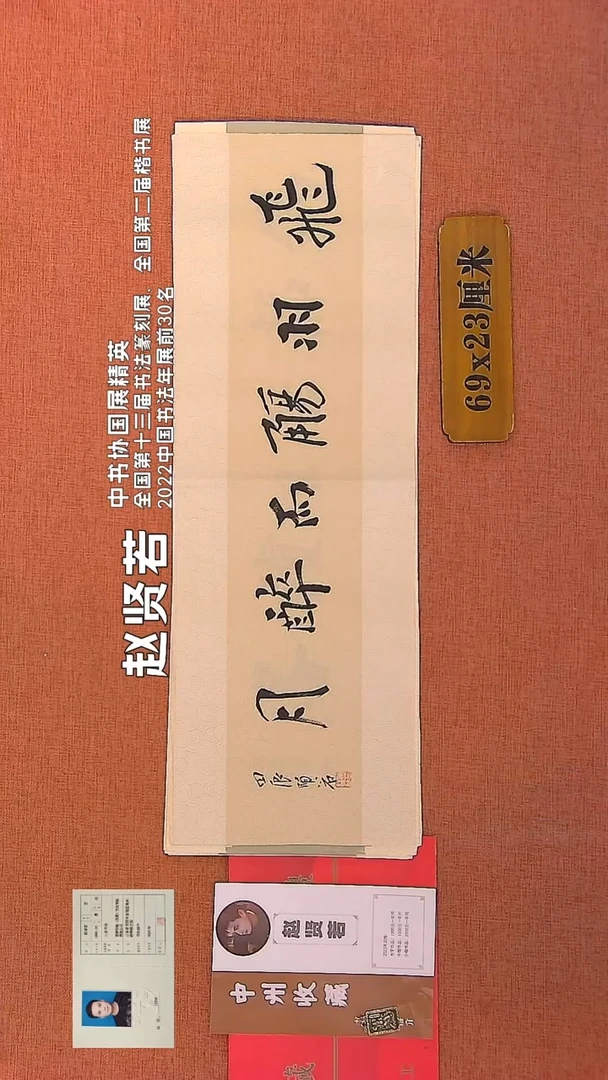 赵贤若
中书协国展精英
全国第十三届书法篆刻展、全国第二届楷书展
2022中国书法年展前30名
飛羽觴而醉月
甲辰賢若
69x23厘米
赵贤若
中州收藏
藏